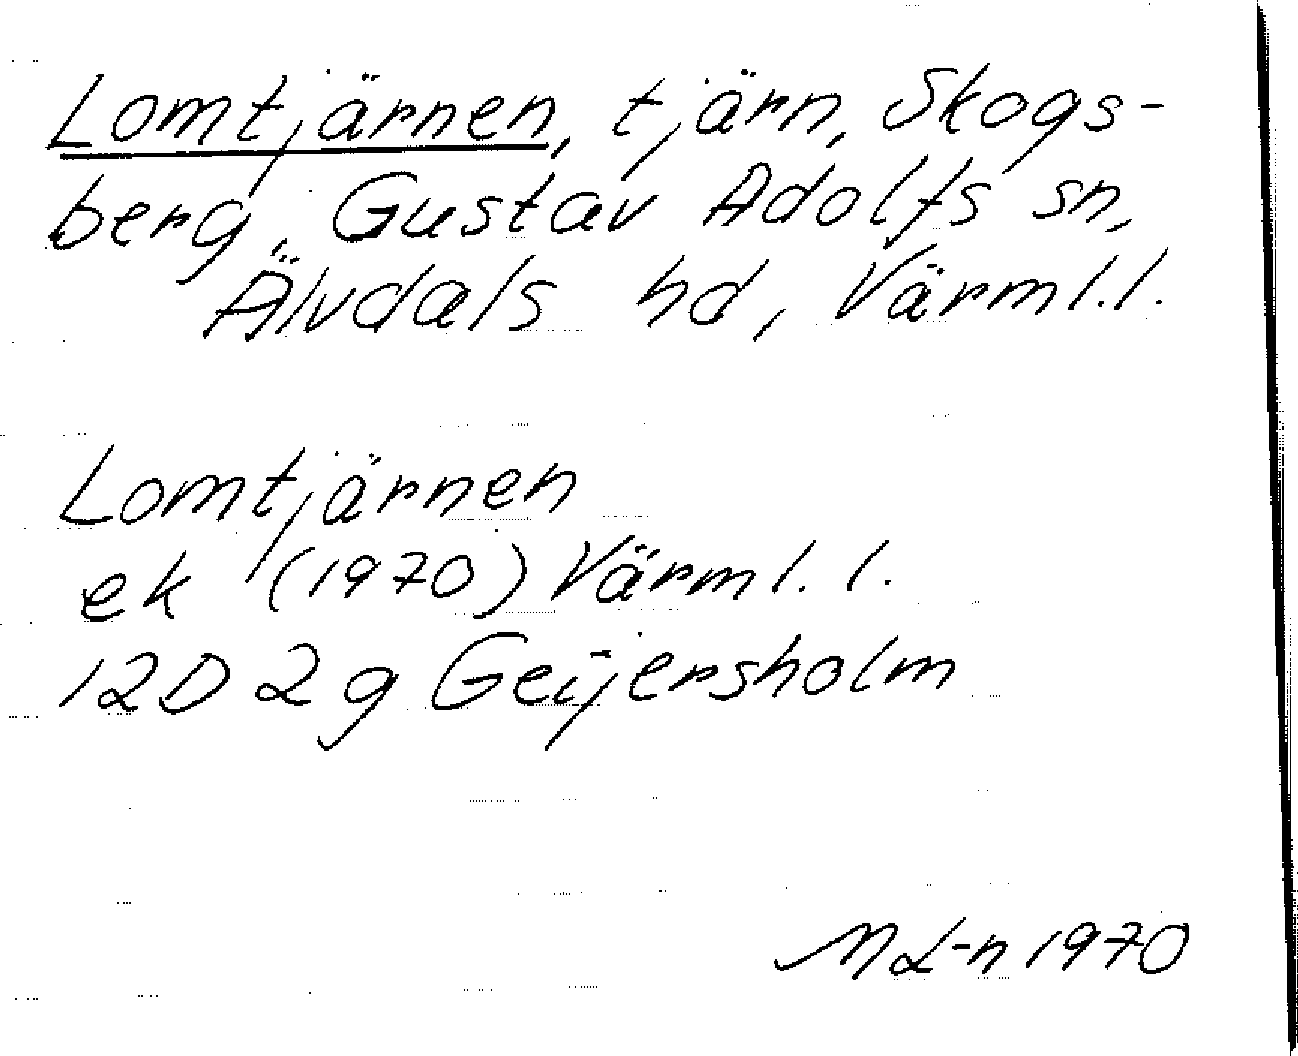 Lomtjärnen, tjärn, Skogs-
berg, Gustav Adolfs sn,
Älvdals hd, Värml.l.
Lomtjärnen
ek (1970) Värml. l.
12D 2g Geijersholm
ML-n 1970